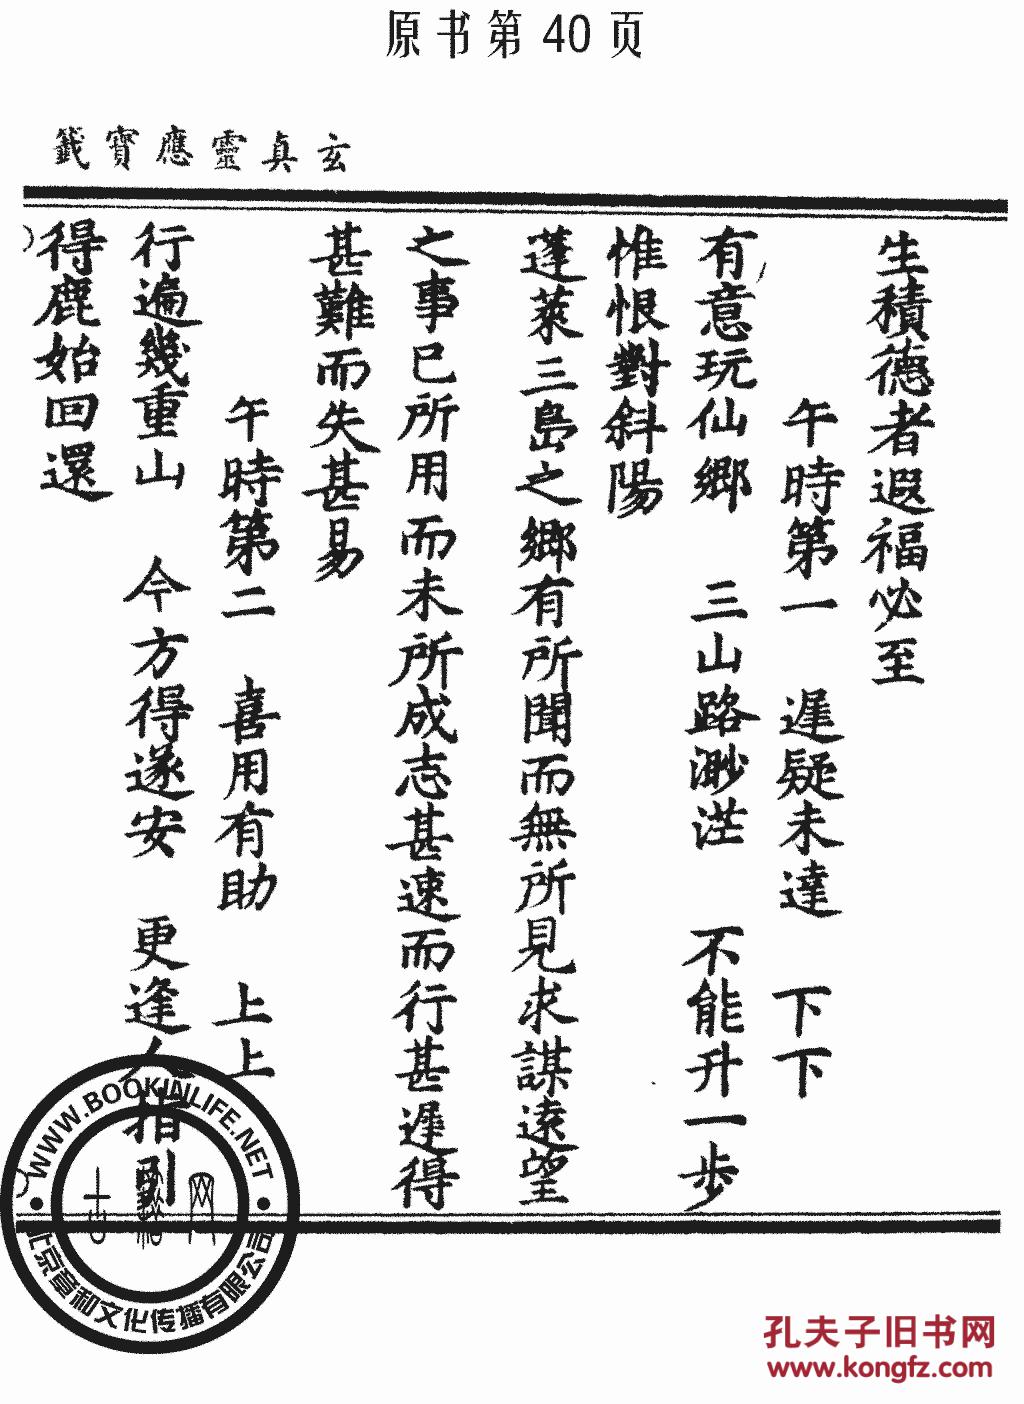 原书第40页
玄真靈應寶籤
生積德者遐福必至
午時第一 遲疑未達 下下
有意玩仙鄉 三山路渺茫 不能升一步
惟恨對斜陽
蓬萊三島之鄉有所聞而無所見求謀遠望
之事已所用而未所成志甚速而行甚遲得
甚難而失甚易
午時第二 喜用有助 上上
行遍幾重山 今方得遂安 更逢人指引
得鹿始回還
WWW.BOOKINLIFE.NET
北京章和文化传播有限公司
孔夫子旧书网
www.kongfz.com